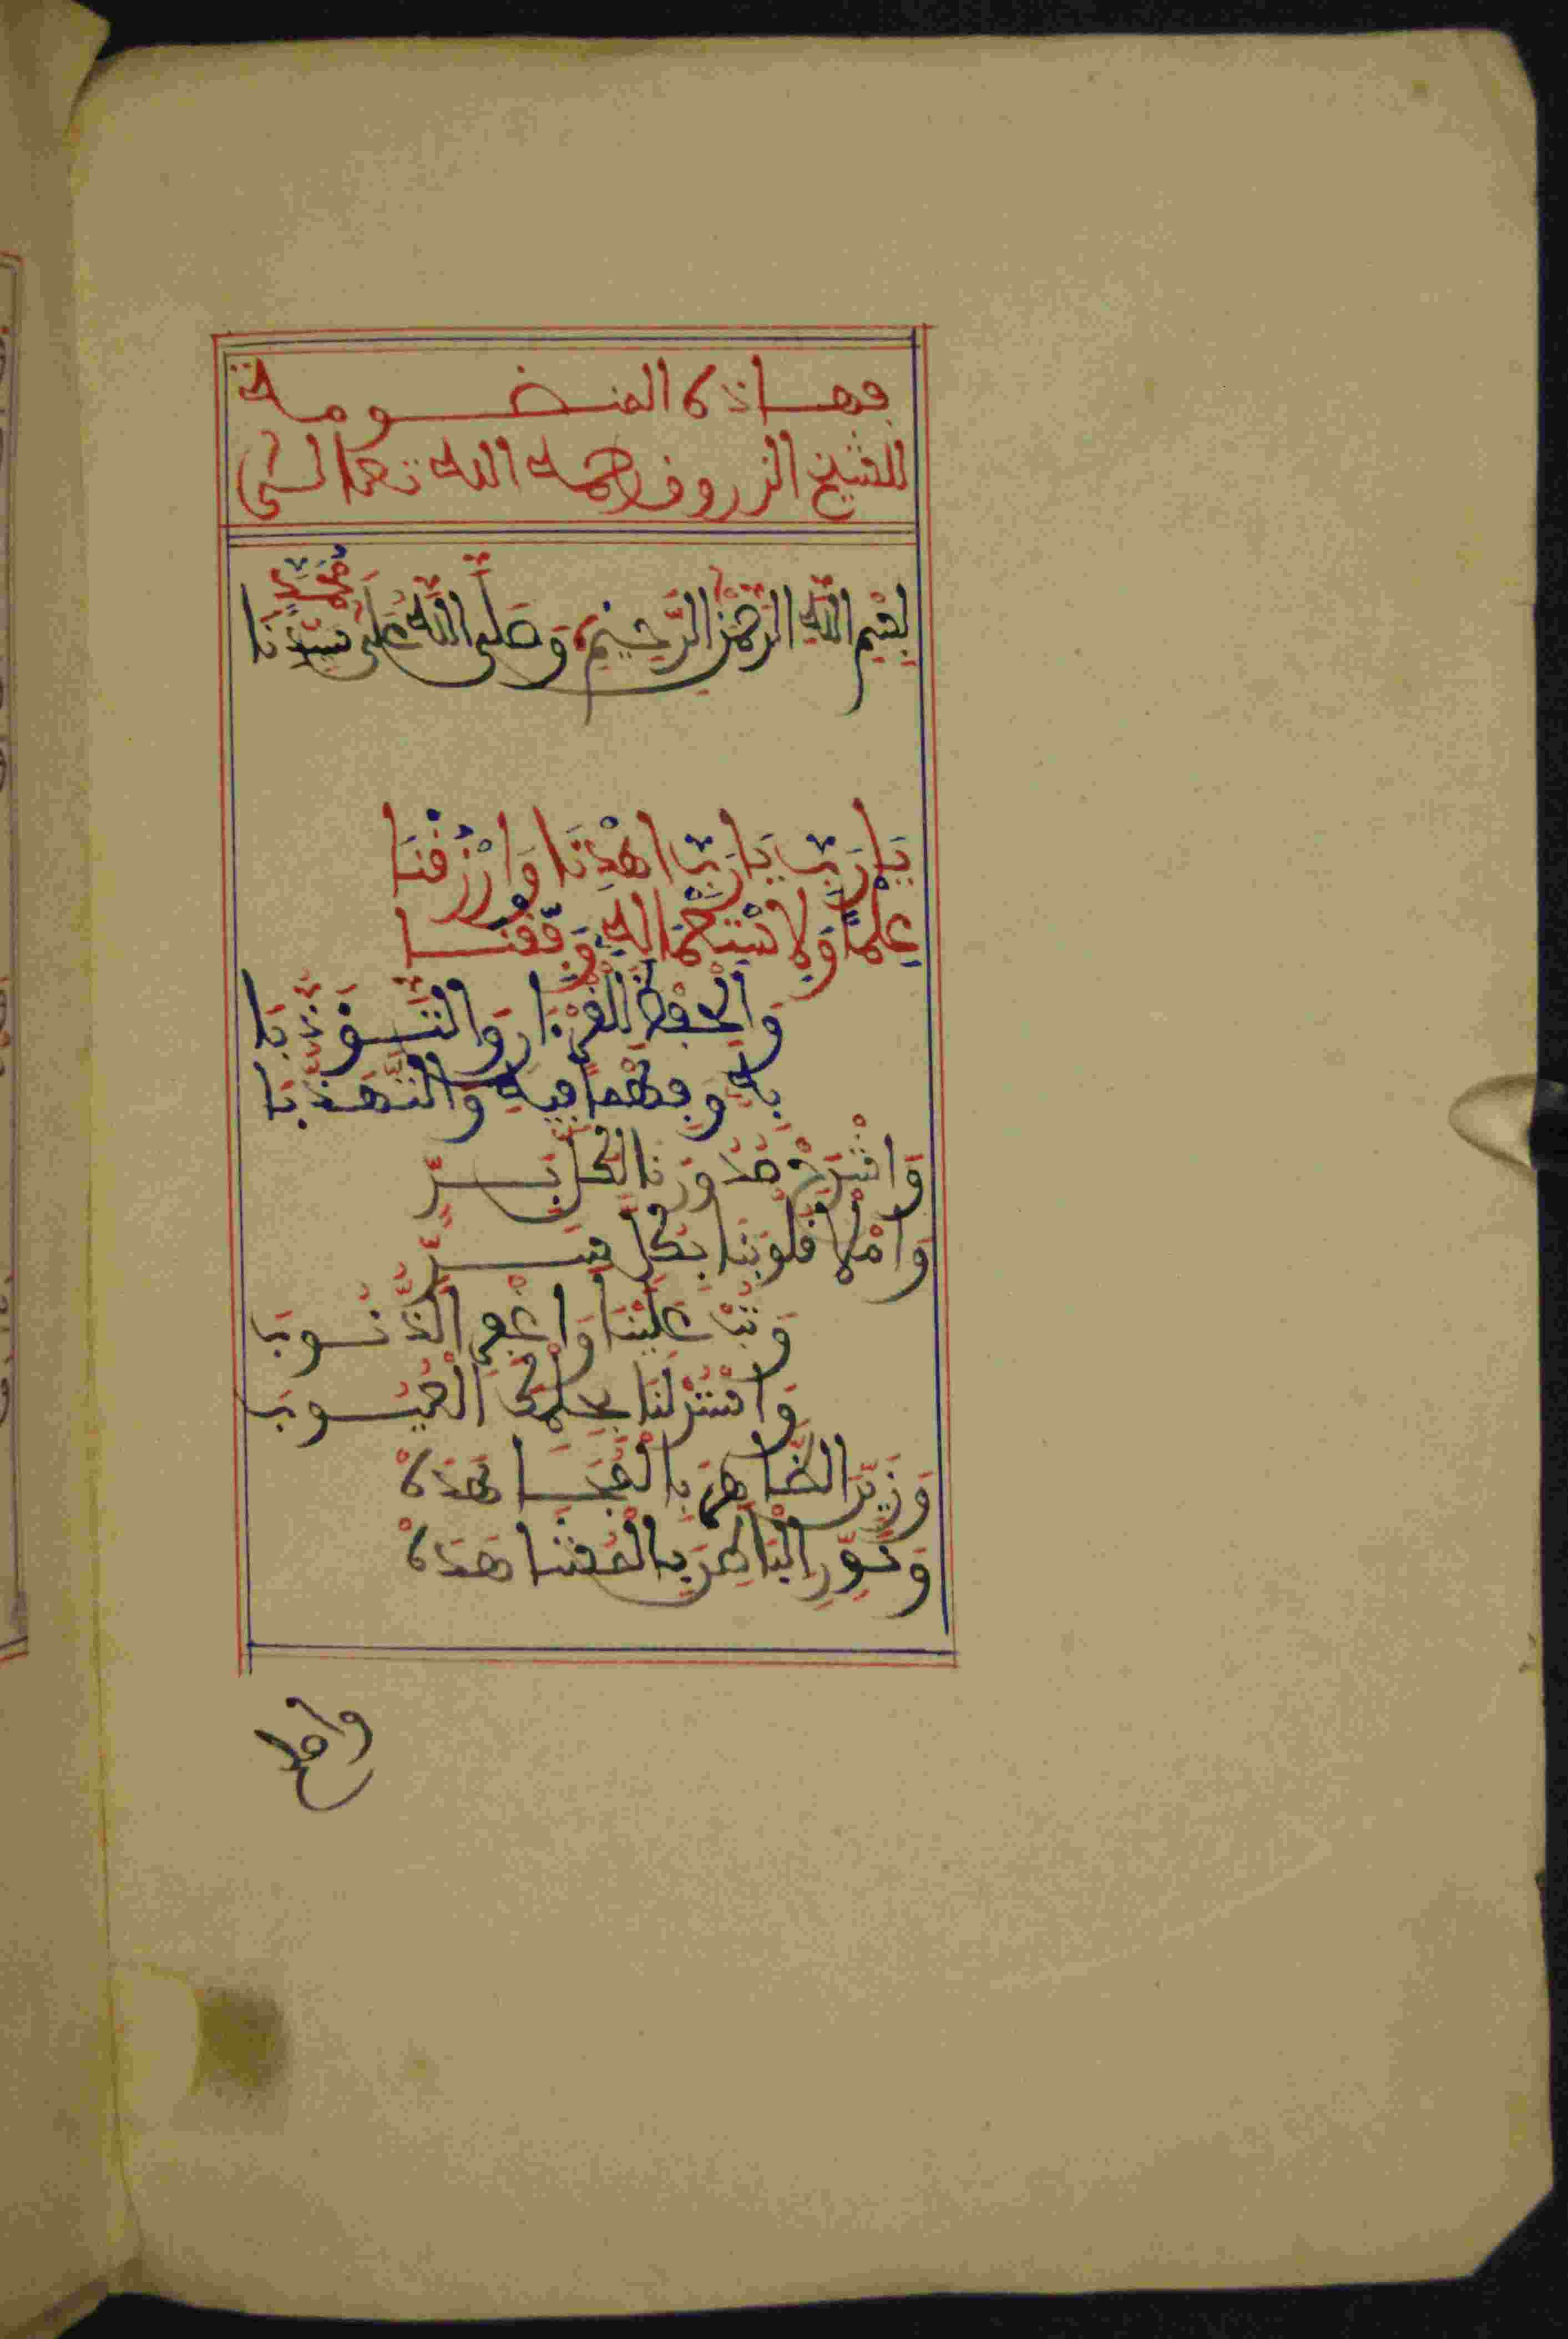 فهاذه المنضومة
للشيخ الزروق رحمه الله تعالى
بِسْمِ اللَّهِ الرَّحْمَنِ الرَّحِيمِ وَصَلَّى اللَّهُ عَلَى سَيِّدِنَا مُحَمَّدٍ
يَا رَبِّ يَا رَبِّ اهْدِنَا وَارْزُقْنَا
عِلْمًا وَلِاسْتِعْمَالِهِ وَفِّقْنَا
وَالْحِفْظَ لِلْقُرْءَانِ وَالتَّعَوُّذَ بَا
بِهِ وَفَهْمًا فِيهِ وَالتَّهَذُّبَا
وَاشْرَحْ صُدُورَنَا لِكُلِّ بِرِّ
وَامْلَأْ قُلُوبَنَا بِكُلِّ سِرِّ
وَتُبْ عَلَيْنَا وَاغْفِرِ الذُّنُوبَ
وَاسْتُرْ لَنَا بِحِلْمِكَ الْعُيُوبَ
وَزَيِّنِ الظَّاهِرَ بِالْمُجَاهَدَهْ
وَنَوِّرِ الْبَاطِنَ بِالْمُشَاهَدَهْ
واقطع